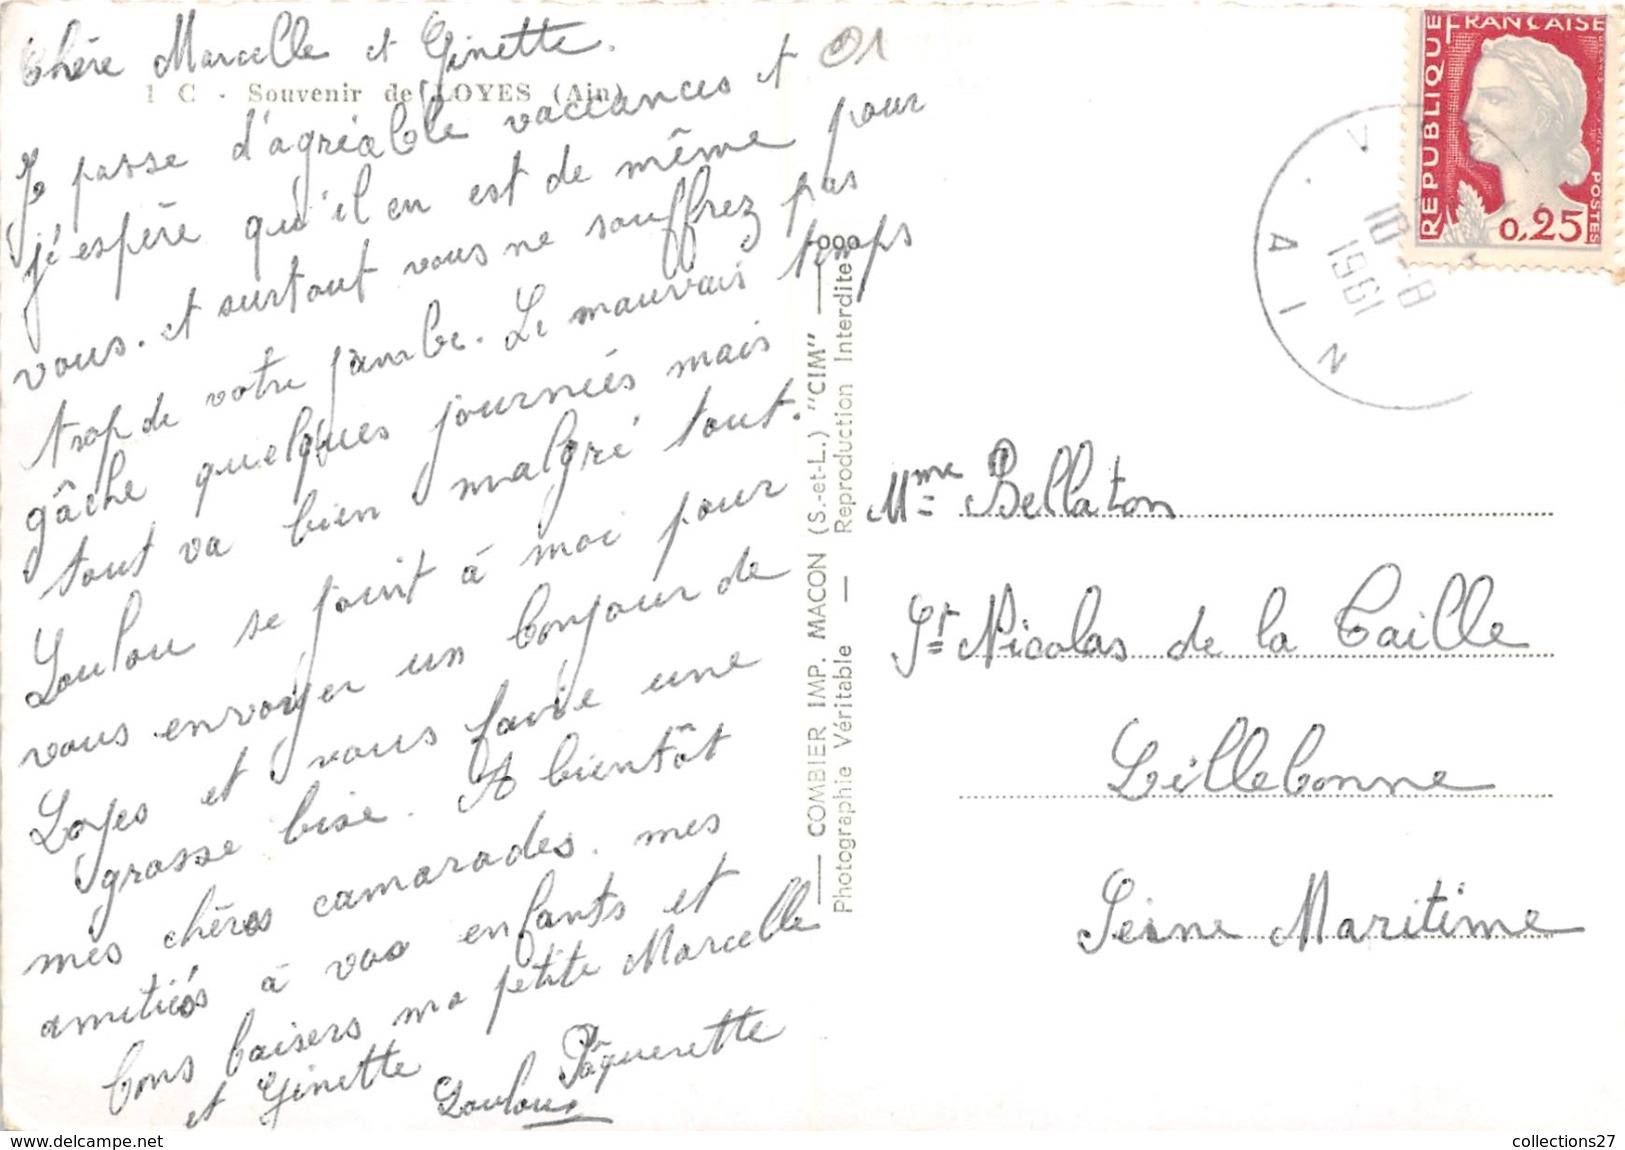 Chère Marcelle et Ginette.
1 C - Souvenir de LOYES (Ain)
Je passe d'agréable vaccances et
j'éspère qu'il en est de même pour
vous. et surtout vous ne souffrez pas
trop de votre jambe. Le mauvais temps
gâche quelques journéés mais
tout va bien malgré tout.
Loulou se joint à moi pour
vous envoyer un bonjour de
Loyes et vous faire une
grosse bise. A bientôt
mes chères camarades. mes
amitiés à vos enfants et
bons baisers ma petite Marcelle
et Ginette
Pâquerette
Loulou
01
COMBIER IMP. MACON (S.-et-L.) "CIM"
Photographie Véritable — Reproduction Interdite
REPUBLIQUE
FRANÇAISE
POSTES
0,25
V
10 -8
1961
AIN
Mme Bellaton
St Nicolas de la Taille
Lillebonne
Seine Maritime
www.delcampe.net
collections27